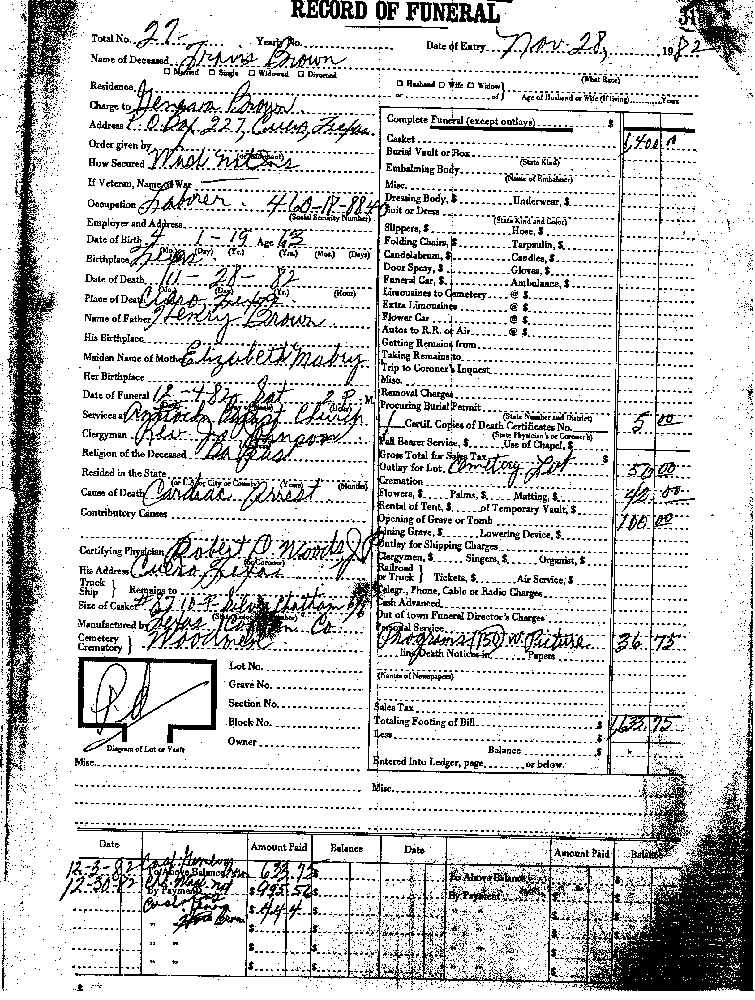 RECORD OF FUNERAL
Total No. 27- Yearly No. Date of Entry Nov. 28, 1982
Name of Deceased Travis Brown
☐ Married ☐ Single ☐ Widowed ☐ Divorced (What Race)
Residence ☐ Husband ☐ Wife ☐ Widow of Age of Husband or Wife (if living) Years
Charge to Brown
Address P.O. Box 227, Cuero, Texas
Order given by
How Secured
If Veteran, Name of War
Occupation Laborer. (Social Security Number)
Employer and Address
Date of Birth 4 1-19 Age 63
(Mo.) (Day) (Yr.) (Yrs.) (Mos.) (Days)
Birthplace Texas
Date of Death 11-28-82
(Mo.) (Day) (Yr.) (Hour)
Place of Death Cuero Texas
Name of Father Henry Brown
His Birthplace
Maiden Name of Mother Elizabeth Mabry
Her Birthplace
Date of Funeral 12-4-82 Sat 2 P. M.
Services at Baptist Church
Clergyman Rev. Johnson
Religion of the Deceased Baptist
Resided in the State
(or U.S. or City or County) (Years) (Months)
Cause of Death Cardiac Arrest
Contributory Causes
Certifying Physician Robert C. Woods J.P.
(or Coroner)
His Address Cuero Texas
Truck
Ship } Remains to
Size of Casket Silver
Manufactured by Texas Co
Cemetery
Crematory } Woodmen
Lot No.
Grave No.
Section No.
Block No.
Owner
Diagram of Lot or Vault
Misc.
Complete Funeral (except outlays) $
Casket 1,400
Burial Vault or Box
(State Kind)
Embalming Body
(Name of Embalmer)
Misc.
Dressing Body, $ Underwear, $
Suit or Dress
(State Kind and Color)
Slippers, $ Hose, $
Folding Chairs, $ Tarpaulin, $
Candelabrum, $ Candles, $
Door Spray, $ Gloves, $
Funeral Car, $ Ambulance, $
Limousines to Cemetery @ $
Extra Limousines @ $
Flower Car @ $
Autos to R.R. or Air @ $
Getting Remains from
Taking Remains to
Trip to Coroner's Inquest
Misc.
Removal Charges
Procuring Burial Permit
(State Number and District)
1 Certif. Copies of Death Certificates No. 5 00
(State Physician's or Coroner's)
Pall Bearer Service, $ Use of Chapel, $
Gross Total for Sales Tax $
Outlay for Lot, Cemetery Lot 50 00
Cremation
Flowers, $ Palms, $ Matting, $ 42 00
Rental of Tent, $ of Temporary Vault, $
Opening of Grave or Tomb 100 00
Lining Grave, $ Lowering Device, $
Outlay for Shipping Charges
Clergymen, $ Singers, $ Organist, $
Railroad
or Truck } Tickets, $ Air Service, $
Telegr., Phone, Cable or Radio Charges
Cash Advanced
Out of town Funeral Director's Charges
Personal Service
Programs (150) w. Picture 36 75
Death Notices in Papers
(Names of Newspapers)
Sales Tax
Totaling Footing of Bill $ 1633.75
Less
Balance $
Entered into Ledger, page or below.
Misc.
Date Amount Paid Balance Date Amount Paid Balance
12-3-82 To Above Balance 633.75 To Above Balance
12-30-82 By Payment $ By Payment
444